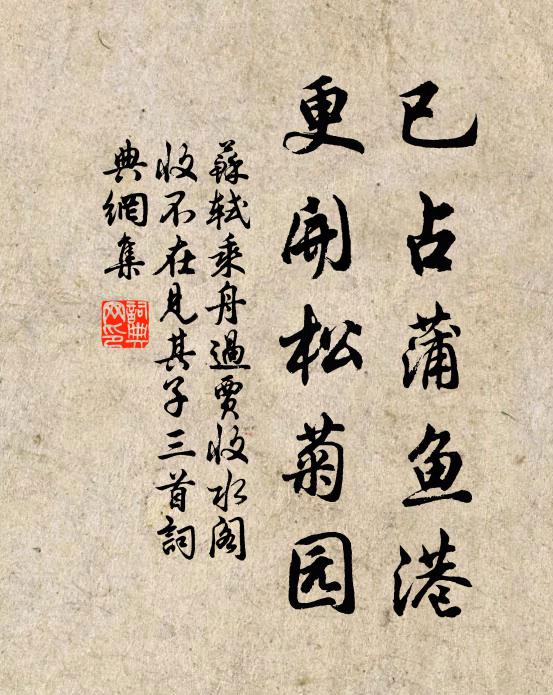 已占蒲鱼港
更開松菊园
蘇軾乘舟過賈收水阁
收不在見其子三首詞
典網集
詞典
网印